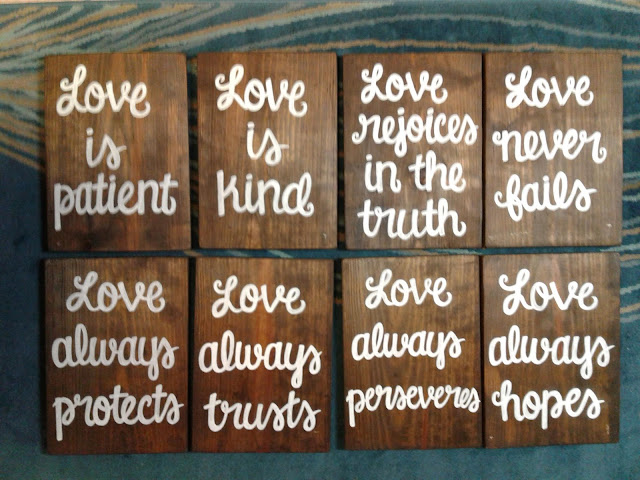 Love
is
patient
Love
is
kind
Love
rejoices
in the
truth
Love
never
fails
Love
always
protects
Love
always
trusts
Love
always
perseveres
Love
always
hopes